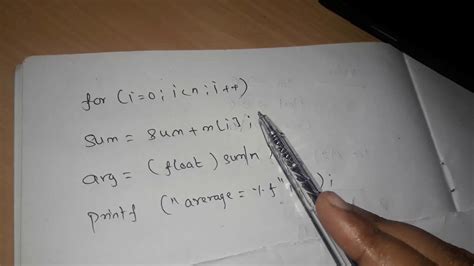 for (i=0; i<n; i++)
sum = sum + m[i];
arg = (float) sum/n
printf ("average = %f" );